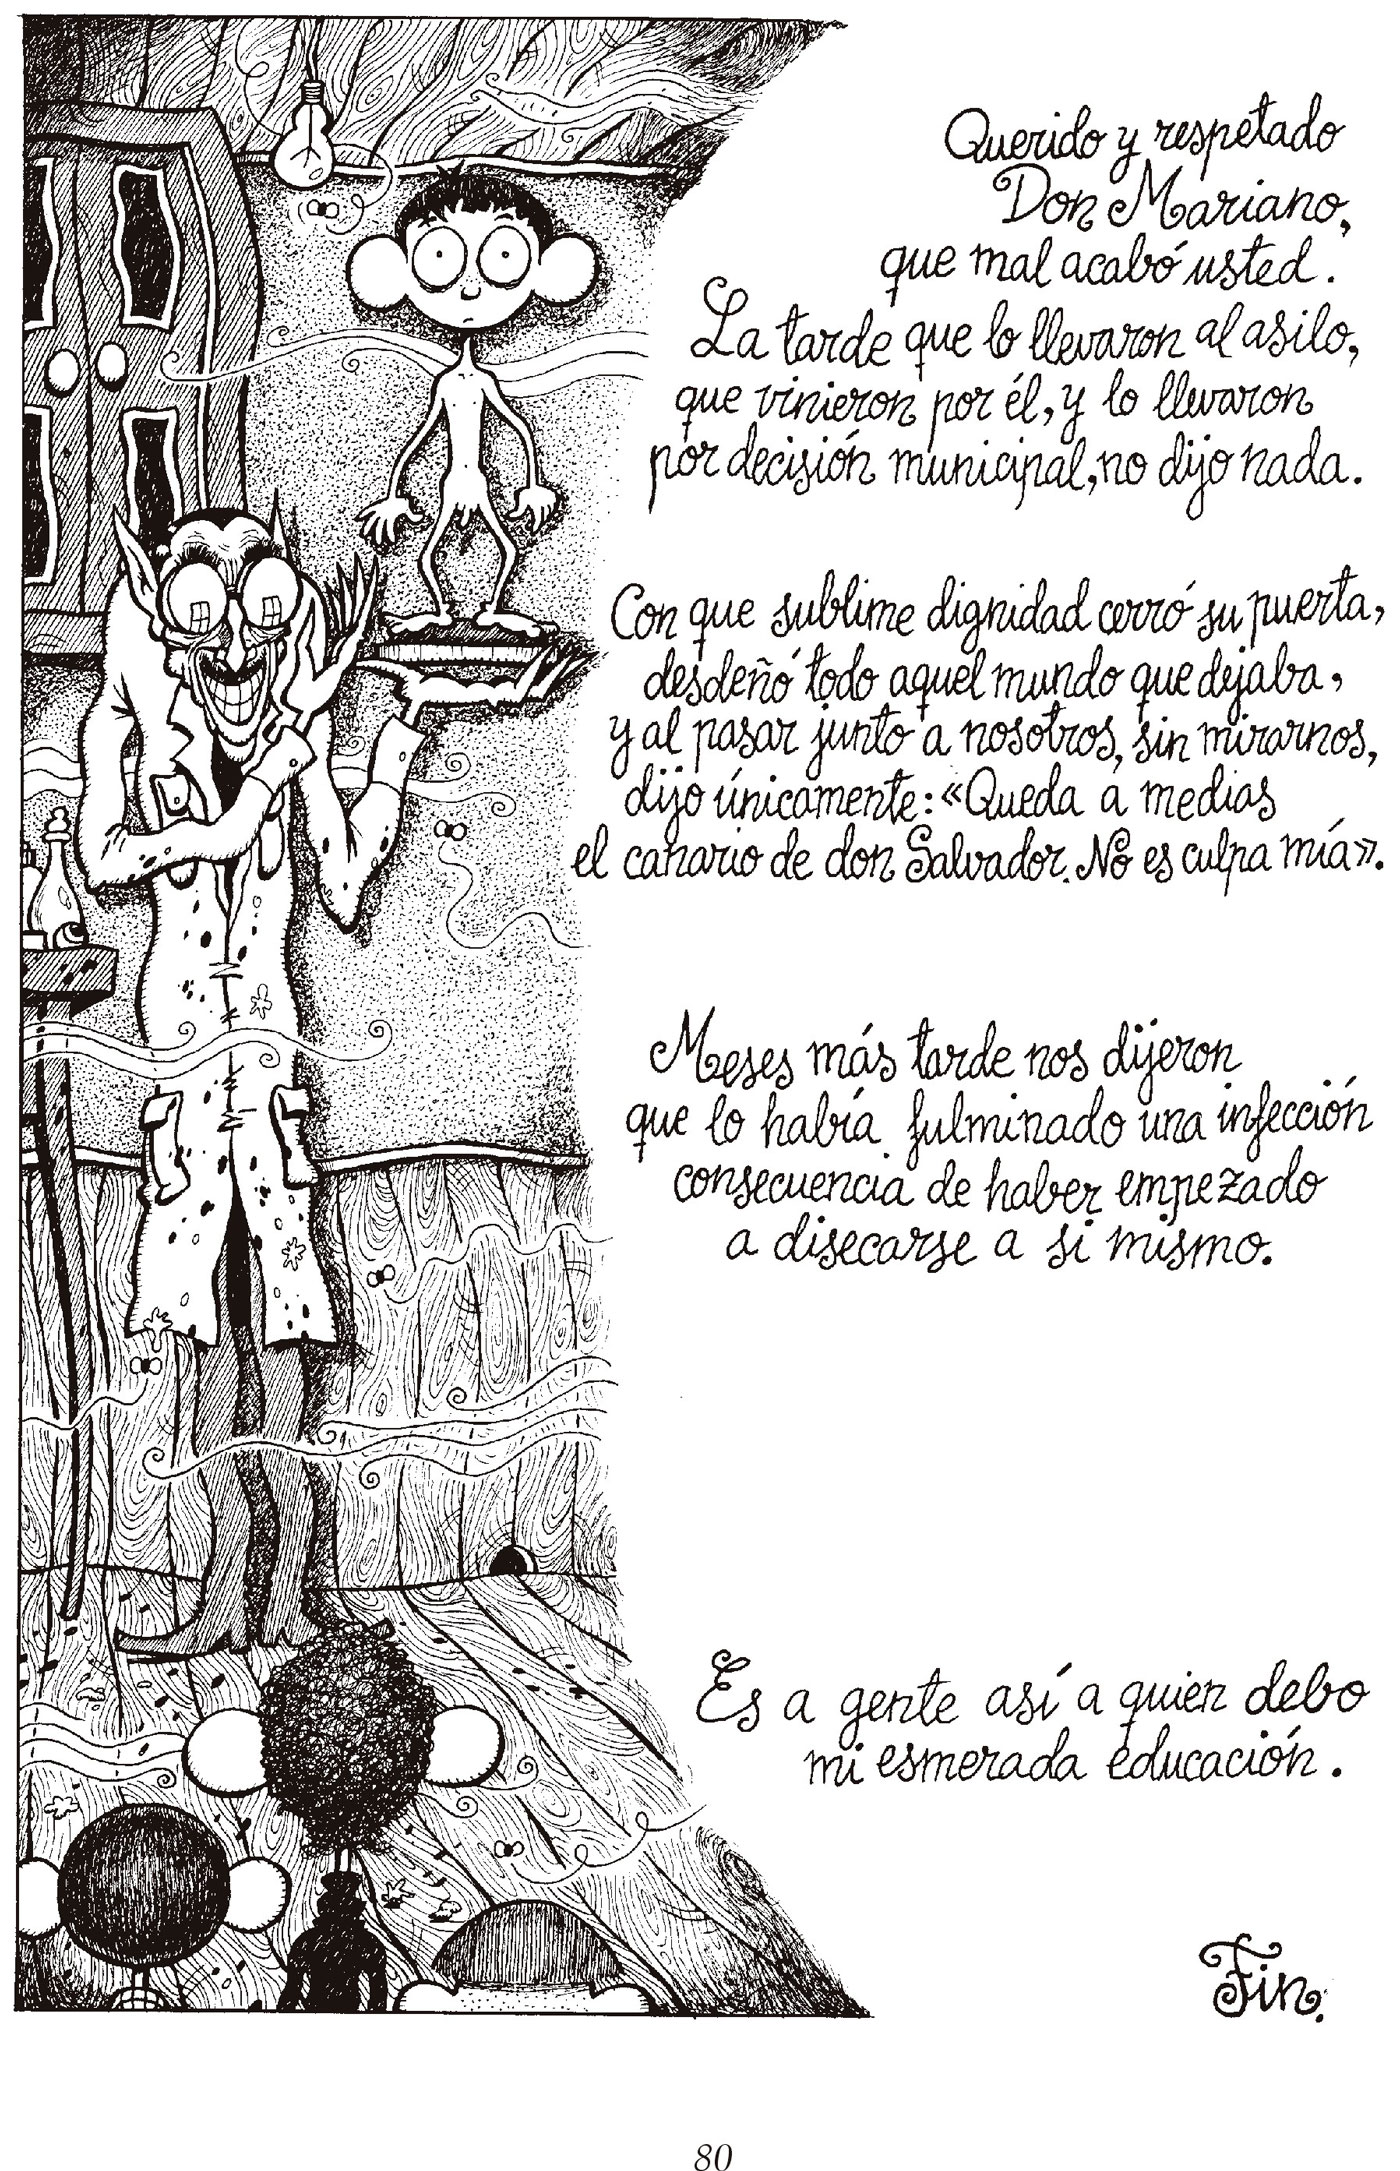 Querido y respetado
Don Mariano,
que mal acabó usted.
La tarde que lo llevaron al asilo,
que vinieron por él, y lo llevaron
por decisión municipal, no dijo nada.
Con que sublime dignidad cerró su puerta,
desdeñó todo aquel mundo que dejaba,
y al pasar junto a nosotros, sin mirarnos,
dijo únicamente: «Queda a medias
el canario de don Salvador. No es culpa mía».
Meses más tarde nos dijeron
que lo había fulminado una infección
consecuencia de haber empezado
a disecarse a si mismo.
Es a gente así a quien debo
mi esmerada educación.
Fin.
80